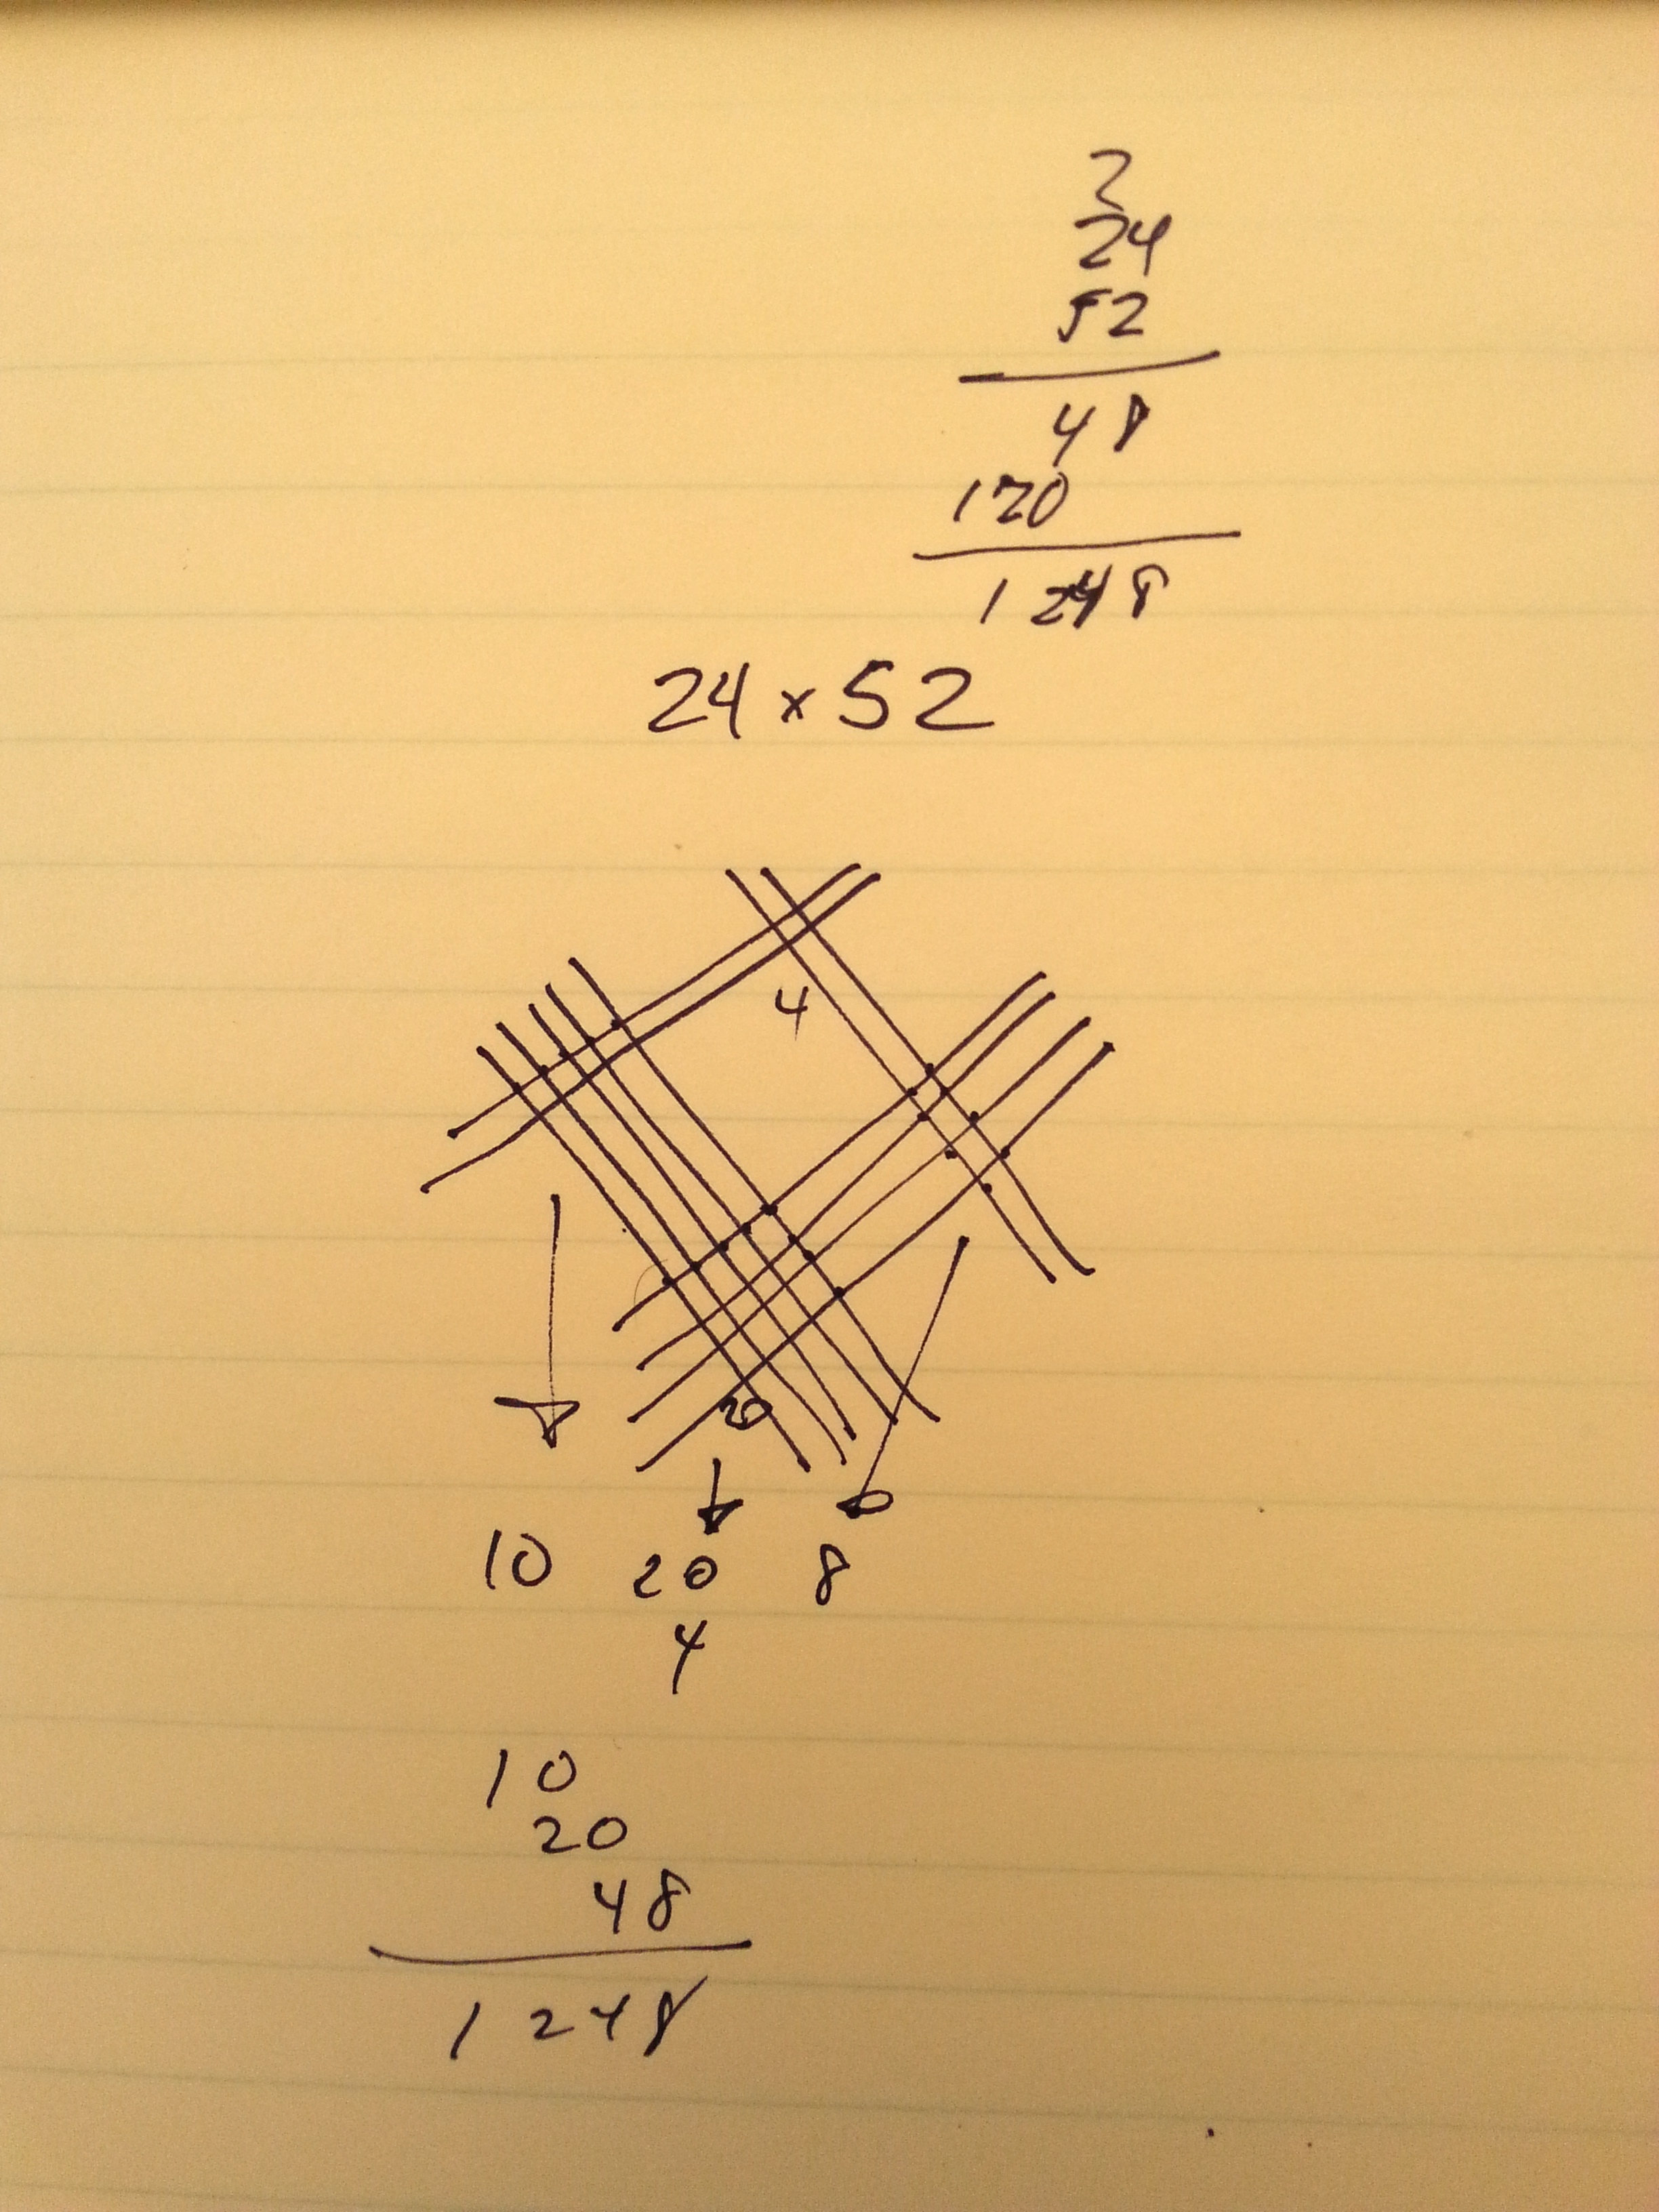 2
24
52
48
120
1248
24 x 52
4
20
10 20 8
4
10
20
48
1248